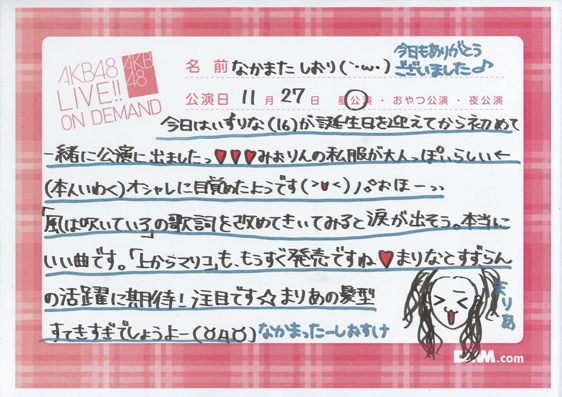 AKB48
LIVE!!
ON DEMAND
AKB
48
名前 なかまた しおり(`･ω･)
今日もありがとう
ございました♪
公演日 11月27日 昼公演・おやつ公演・夜公演
今日はいずりな(16)が誕生日を迎えてから初めて
一緒に公演に出ましたっ♥♥♥みおりんの私服が大人っぽいらしい←
(本人いわく)オシャレに目覚めたようです(>u<)ノ おほーっっ
「風は吹いている」の歌詞を改めてきいてみると涙が出そう。本当に
いい曲です。「上からマリコ」も、もうすぐ発売ですね♥まりなとすずらん
の活躍に期待!注目です☆まりあの髪型
すてきすぎでしょうよー(ŎAŎ)なかまったーしおすけ
まりあ
DMM.com